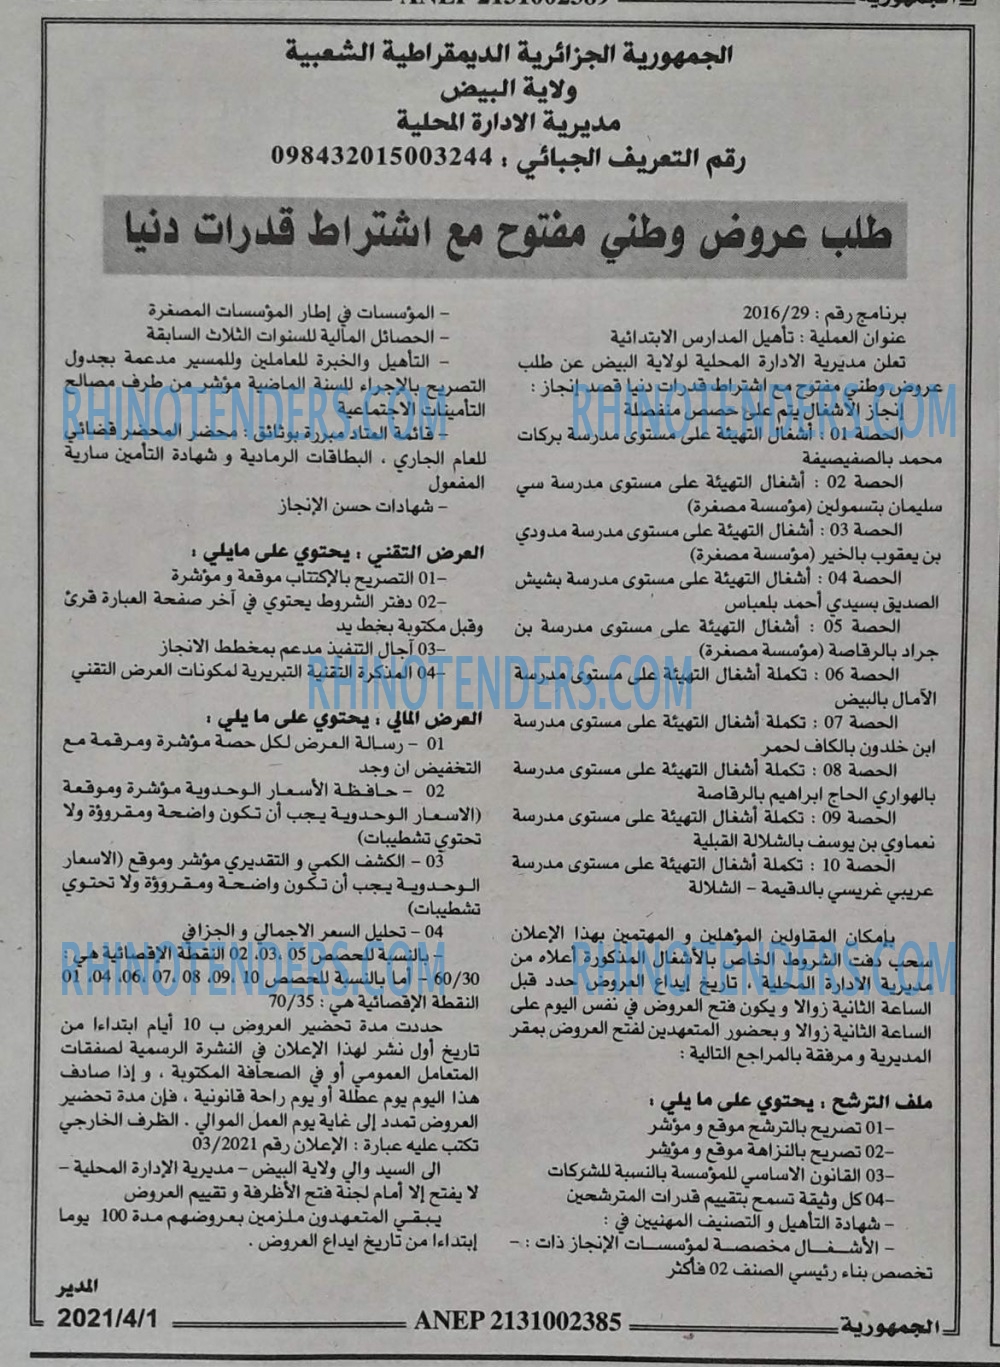 ANEP 2131002389
الجمهورية
الجمهورية الجزائرية الديمقراطية الشعبية
ولاية البيض
مديرية الادارة المحلية
رقم التعريف الجبائي : 098432015003244
طلب عروض وطني مفتوح مع اشتراط قدرات دنيا
برنامج رقم : 2016/29
عنوان العملية : تأهيل المدارس الابتدائية
تعلن مديرية الادارة المحلية لولاية البيض عن طلب
عروض وطني مفتوح مع اشتراط قدرات دنيا قصد إنجاز :
إنجاز الأشغال يتم على حصص منفصلة
الحصة 01 : أشغال التهيئة على مستوى مدرسة بركات
محمد بالصفيصيفة
الحصة 02 : أشغال التهيئة على مستوى مدرسة سي
سليمان بتسمولين (مؤسسة مصغرة)
الحصة 03 : أشغال التهيئة على مستوى مدرسة مدودي
بن يعقوب بالخير (مؤسسة مصغرة)
الحصة 04 : أشغال التهيئة على مستوى مدرسة بشيش
الصديق بسيدي أحمد بلعباس
الحصة 05 : أشغال التهيئة على مستوى مدرسة بن
جراد بالرقاصة (مؤسسة مصغرة)
الحصة 06 : تكملة أشغال التهيئة على مستوى مدرسة
الآمال بالبيض
الحصة 07 : تكملة أشغال التهيئة على مستوى مدرسة
ابن خلدون بالكاف لحمر
الحصة 08 : تكملة أشغال التهيئة على مستوى مدرسة
بالهواري الحاج ابراهيم بالرقاصة
الحصة 09 : تكملة أشغال التهيئة على مستوى مدرسة
نعماوي بن يوسف بالشلالة القبلية
الحصة 10 : تكملة أشغال التهيئة على مستوى مدرسة
عريبي غريسي بالدقيمة – الشلالة
بإمكان المقاولين المؤهلين و المهتمين بهذا الإعلان
سحب دفت الشروط الخاص بالأشغال المذكورة أعلاه من
مديرية الادارة المحلية ، تاريخ إيداع العروض حدد قبل
الساعة الثانية زوالا و يكون فتح العروض في نفس اليوم على
الساعة الثانية زوالا و بحضور المتعهدين لفتح العروض بمقر
المديرية و مرفقة بالمراجع التالية :
ملف الترشح : يحتوي على ما يلي :
–01 تصريح بالترشح موقع و مؤشر
–02 تصريح بالنزاهة موقع و مؤشر
–03 القانون الاساسي للمؤسسة بالنسبة للشركات
–04 كل وثيقة تسمح بتقييم قدرات المترشحين
– شهادة التأهيل و التصنيف المهنيين في :
– الأشغال مخصصة لمؤسسات الإنجاز ذات : –
تخصص بناء رئيسي الصنف 02 فأكثر
– المؤسسات في إطار المؤسسات المصغرة
– الحصائل المالية للسنوات الثلاث السابقة
– التأهيل والخبرة للعاملين وللمسير مدعمة بجدول
التصريح بالاجراء للسنة الماضية مؤشر من طرف مصالح
التأمينات الاجتماعية
– قائمة العتاد مبررة بوثائق : محضر المحضر قضائي
للعام الجاري ، البطاقات الرمادية و شهادة التأمين سارية
المفعول
– شهادات حسن الإنجاز
العرض التقني : يحتوي على مايلي :
–01 التصريح بالإكتتاب موقعة و مؤشرة
–02 دفتر الشروط يحتوي في آخر صفحة العبارة قرئ
وقبل مكتوبة بخط يد
–03 آجال التنفيذ مدعم بمخطط الانجاز
–04 المذكرة التقنية التبريرية لمكونات العرض التقني
العرض المالي : يحتوي على ما يلي :
01 – رسالة العرض لكل حصة مؤشرة ومرقمة مع
التخفيض ان وجد
02 – حافظة الأسعار الوحدوية مؤشرة وموقعة
(الاسعار الوحدوية يجب أن تكون واضحة ومقروؤة ولا
تحتوي تشطيبات)
03 – الكشف الكمي و التقديري مؤشر وموقع (الاسعار
الوحدوية يجب أن تكون واضحة ومقروؤة ولا تحتوي
تشطيبات)
04 – تحليل السعر الاجمالي و الجزافي
– بالنسبة للحصص 05 ،03، 02 النقطة الإقصائية هي :
60/30 – أما بالنسبة للحصص 10 ،09، 08، 07، 06، 04، 01
النقطة الإقصائية هي : 70/35
حددت مدة تحضير العروض ب 10 أيام ابتداءا من
تاريخ أول نشر لهذا الإعلان في النشرة الرسمية لصفقات
المتعامل العمومي أو في الصحافة المكتوبة ، و إذا صادف
هذا اليوم يوم عطلة أو يوم راحة قانونية ، فإن مدة تحضير
العروض تمدد إلى غاية يوم العمل الموالي . الظرف الخارجي
تكتب عليه عبارة : الإعلان رقم 03/2021
الى السيد والي ولاية البيض – مديرية الإدارة المحلية –
لا يفتح إلا أمام لجنة فتح الأظرفة و تقييم العروض
يبقي المتعهدون ملزمين بعروضهم مدة 100 يوما
إبتداءا من تاريخ ايداع العروض .
المدير
الجمهورية
ANEP 2131002385
2021/4/1
RHINOTENDERS.COM
RHINOTENDERS.COM
RHINOTENDERS.COM
RHINOTENDERS.COM
RHINOTENDERS.COM